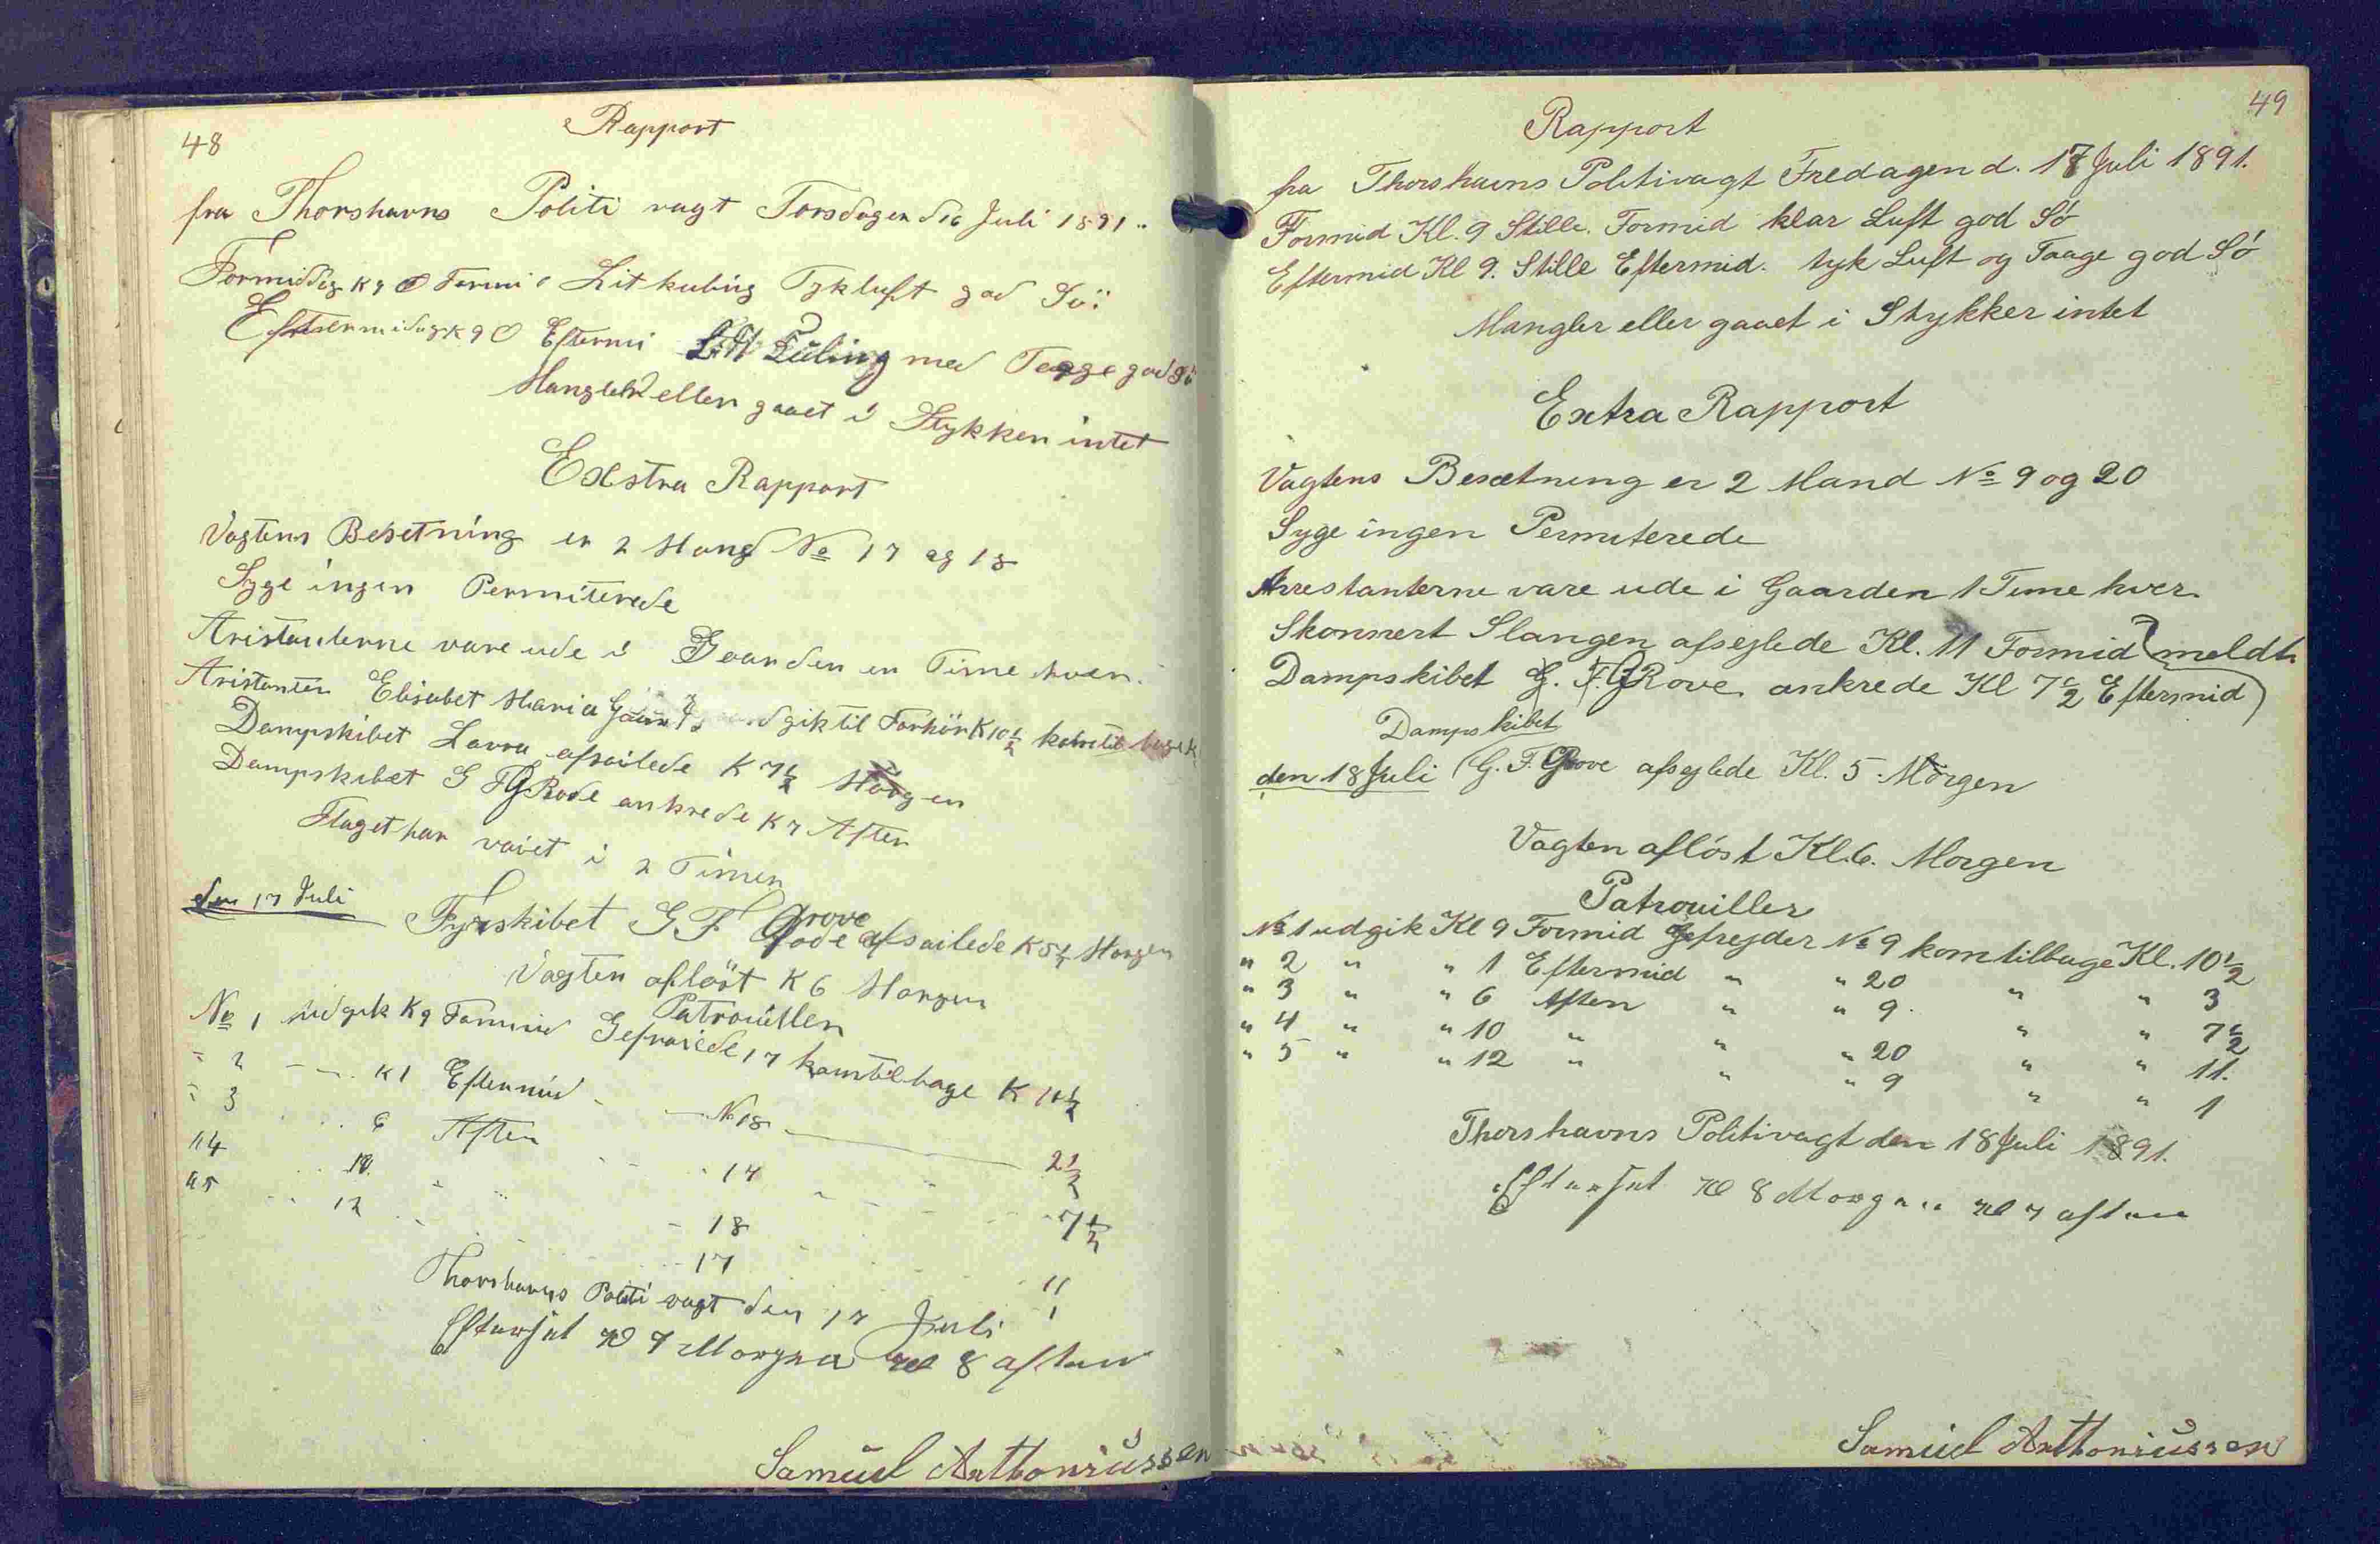 48
Rapport
fra Thorshavns Politi vagt Torsdagen d 16 Juli 1891.
Formiddag K 9 O Formi Lit kuling Tykluft god Sö
Eftermidag K 9 O Eftermi Lidt Kuling med Taage god Sö
Mangler eller gaaet i Stykker intet
Exstra Rapport
Vagtens Besetning er 2 Mand No 17 og 18
Syge ingen Permiterede
Aristanterne vare ude i Gaarden en Time hver.
Aristanten Elisabet Maria gik til Forhör K 10½ kom tilbage K
Dampskibet Laura afsailede K 7½ Morgen
Dampskibet G F Rode ankrede K 7 Aften
Flaget har vaiet i 2 Timer
den 17 Juli Fyrskibet G. F. Grove afsailede K 5½ Morgen
Vagten aflöst K 6 Morgen
Patrouiller
No 1 udgik K 9 Formid Gefraiede 17 kom tilbage K 11½
" 2 - - K 1 Eftermid - - No 18 - 2½
" 3 - - 6 Aften - - 17 - - 7½
" 4 - - 10 " - - 18 - - 11
" 5 - - 12 - - - 17 - - 1
Thorshavns Politi vagt den 17 Juli
Efterset Kl 7 Morgen Kl 8 aften
Samuel Anthoniussen
49
Rapport
fra Thorshavns Politivagt Fredagen d. 17 Juli 1891.
Formid Kl. 9 Stille. Formid klar Luft god Sö
Eftermid Kl 9. Stille Eftermid. tyk Luft og Taage god Sö
Mangler eller gaaet i Stykker intet
Extra Rapport
Vagtens Besætning er 2 Mand No 9 og 20
Syge ingen Permiterede
Arrestanterne vare ude i Gaarden 1 Time hver.
Skonnert Slangen afsejlede Kl. 11 Formid
Dampskibet G. F. Grove ankrede Kl 7½ Eftermid (meldt)
Dampskibet
den 18 Juli (G. F. Grove afsejlede Kl. 5 Morgen
Vagten aflöst Kl. 6. Morgen
Patrouiller
No 1 udgik Kl 9 Formid Gefrejder No 9 kom tilbage Kl. 10½
" 2 " " 1 Eftermid " " 20 " " 3
" 3 " " 6 Aften " " 9. " " 7½
" 4 " " 10 " " " 20 " " 11.
" 5 " " 12 " " " 9 " " 1
Thorshavns Politivagt den 18 Juli 1891.
Efterset Kl 8 Morgen Kl 7 aften
Samuel Anthoniussen